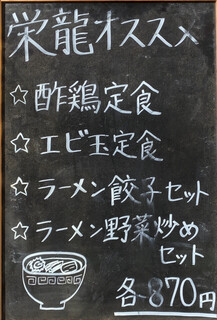 栄龍オススメ
☆酢鶏定食
☆エビ玉定食
☆ラーメン餃子セット
☆ラーメン野菜炒め
セット
各870円